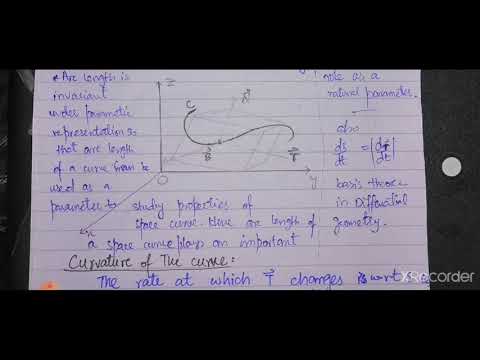 * Arc length is
invariant
under parametric
representation so
that arc length
of a curve can be
used as a
parameter to study properties of
space curve. Here arc length of
a space curve plays an important
Z
C
N
B
T
O
y
x
role as a
natural parameter.
also
ds/dt = |dr/dt|
basis theore
in Differential
geometry.
Curvature of The curve:
The rate at which T⃗ changes is w.r.t
XRecorder